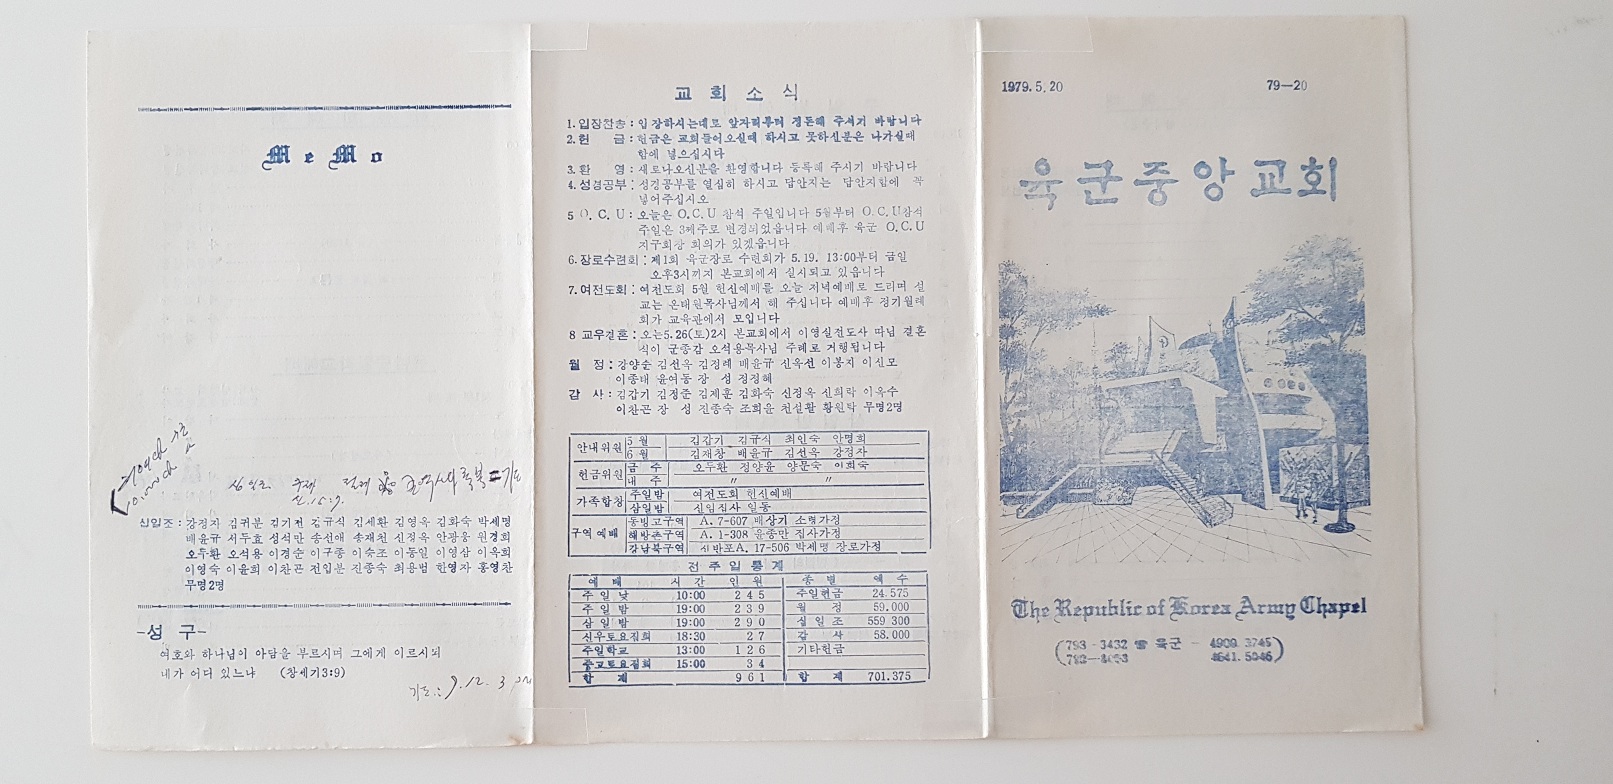 MeMo
십일조 : 강정자 김귀분 김기전 김규식 김세환 김영옥 김화숙 박세명
배윤규 서두효 성석만 송선애 송재천 신정옥 안광웅 원경희
오두환 오석용 이경순 이구종 이숙조 이동일 이영삼 이옥희
이영숙 이윤희 이찬곤 전입분 진종숙 최용범 한영자 홍영찬
무명2명
-성 구-
여호와 하나님이 아담을 부르시며 그에게 이르시되
네가 어디 있느냐 (창세기3:9)
교 회 소 식
1. 입장찬송 : 입장하시는대로 앞자리부터 정돈해 주시기 바랍니다
2. 헌 금 : 헌금은 교회들어오실때 하시고 못하신분은 나가실때
함에 넣으십시다
3. 환 영 : 새로나오신분을 환영합니다 등록해 주시기 바랍니다
4. 성경공부 : 성경공부를 열심히 하시고 답안지는 답안지함에 꼭
넣어주십시오
5 O. C. U : 오늘은 O.C.U 참석 주일입니다 5월부터 O.C.U참석
주일은 3째주로 변경되었읍니다 예배후 육군 O.C.U
지구회장 회의가 있겠읍니다
6. 장로수련회 : 제1회 육군장로 수련회가 5.19. 13:00부터 금일
오후3시까지 본교회에서 실시되고 있읍니다
7. 여전도회 : 여전도회 5월 헌신예배를 오늘 저녁예배로 드리며 설
교는 온태원목사님께서 해 주십니다 예배후 정기월례
회가 교육관에서 모입니다
8 교우결혼 : 오는5.26(토)2시 본교회에서 이영실전도사 따님 결혼
식이 군종감 오석용목사님 주례로 거행됩니다
월 정 : 강양순 김선옥 김정례 배윤규 신옥선 이봉지 이신모
이종태 윤여동 장 성 정정혜
감 사 : 김갑기 김정준 김제훈 김화숙 신정옥 신희락 이옥수
이찬곤 장 성 진종숙 조희윤 천설활 황원탁 무명2명
안내위원 5 월 김갑기 김규식 최인숙 안명희
6 월 김재창 배윤규 김선옥 강정자
헌금위원 금 주 오두환 정양윤 양문숙 이희숙
내 주 〃 〃
가족합창 주일밤 여전도회 헌신예배
삼일밤 신임집사 일동
구역 예배 동빙고구역 A. 7-607 배상기 소령가정
해방촌구역 A. 1-308 윤중만 집사가정
강남북구역 신반포A. 17-506 박세명 장로가정
전 주 일 통 계
예 배 시 간 인 원 종 별 액 수
주 일 낮 10:00 245 주일헌금 24.575
주 일 밤 19:00 239 월 정 59.000
삼 일 밤 19:00 290 십 일 조 559 300
신우토요집회 18:30 27 감 사 58.000
주일학교 13:00 126 기타헌금
중고토요집회 15:00 34
합 계 961 합 계 701.375
1979. 5. 20 79-20
육군중앙교회
The Republic of Korea Army Chapel
(793-3432 ☎ 육군 - 4909. 3745)